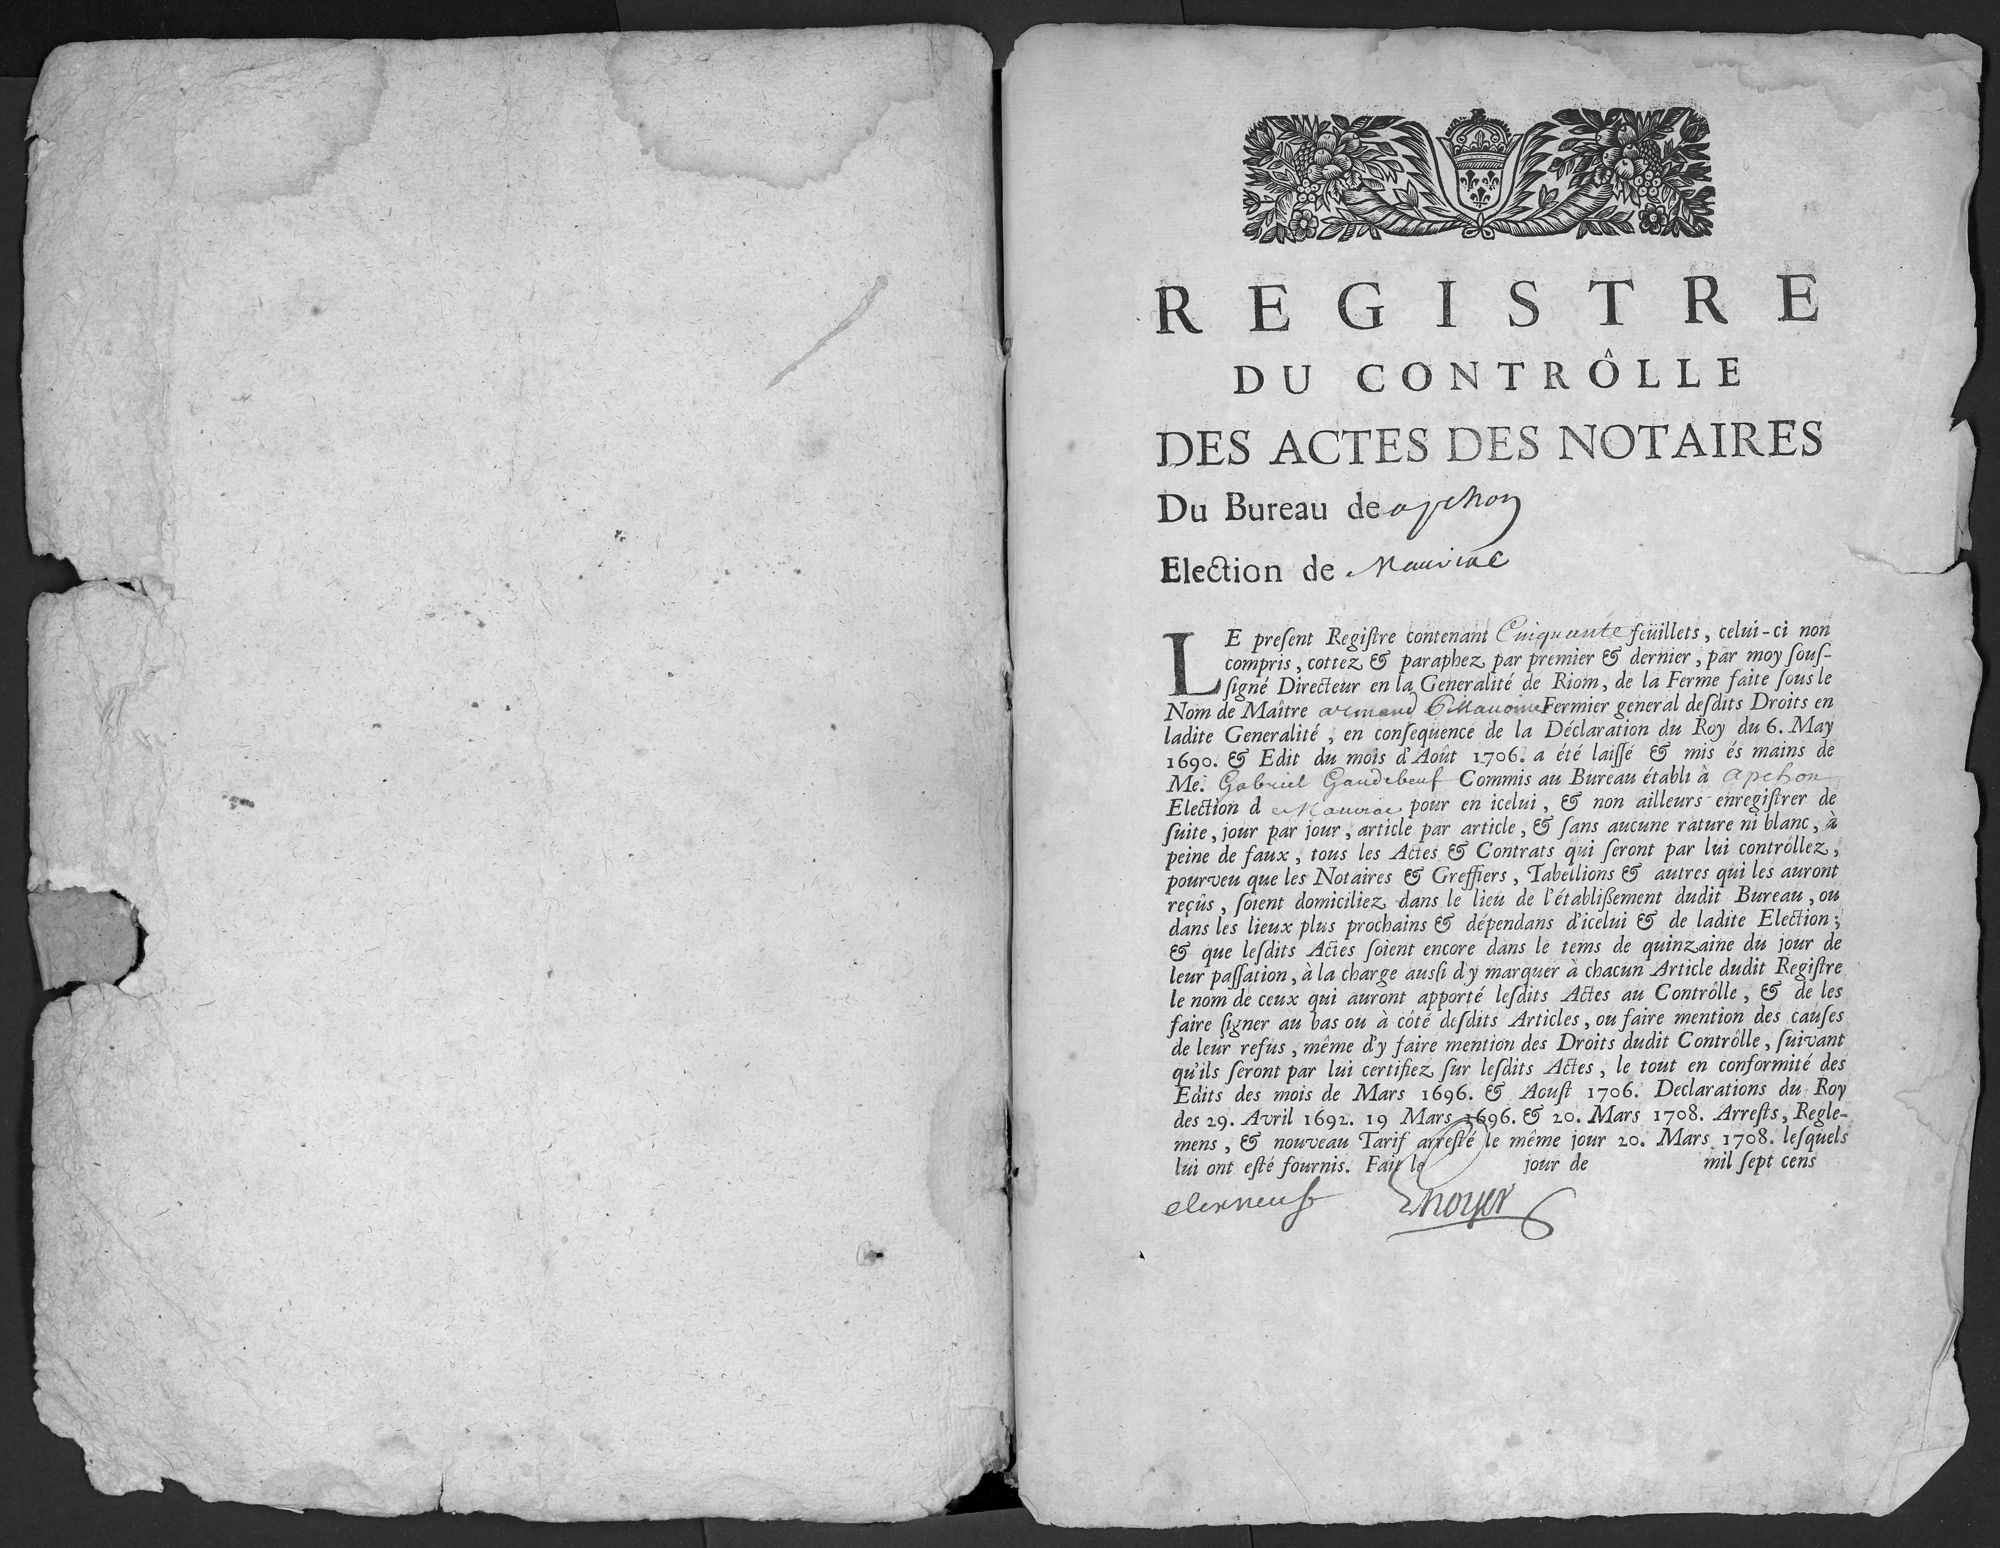 REGISTRE
DU CONTRÔLLE
DES ACTES DES NOTAIRES
Du Bureau de apchon
Election de Mauriac
LE preſent Regiſtre contenant Cinquante feüillets, celui-ci non
compris, cottez & paraphez par premier & dernier, par moy ſouſ-
ſigné Directeur en la Generalité de Riom, de la Ferme faite ſous le
Nom de Maître armand Pillavoine Fermier general deſdits Droits en
ladite Generalité, en conſequence de la Déclaration du Roy du 6. May
1690. & Edit du mois d'Août 1706. a été laiſſé & mis és mains de
Me. Gabriel Gaudebeuf Commis au Bureau établi à apchon
Election d e Mauriac pour en icelui, & non ailleurs enregiſtrer de
ſuite, jour par jour, article par article, & ſans aucune rature ni blanc, à
peine de faux, tous les Actes & Contrats qui ſeront par lui contrôllez,
pourveu que les Notaires & Greffiers, Tabellions & autres qui les auront
reçûs, ſoient domiciliez dans le lieu de l'établiſſement dudit Bureau, ou
dans les lieux plus prochains & dépendans d'icelui & de ladite Election;
& que leſdits Actes ſoient encore dans le tems de quinzaine du jour de
leur paſſation, à la charge auſſi d'y marquer à chacun Article dudit Regiſtre
le nom de ceux qui auront apporté leſdits Actes au Contrôlle, & de les
faire ſigner au bas ou à côté deſdits Articles, ou faire mention des cauſes
de leur refus, même d'y faire mention des Droits dudit Contrôlle, ſuivant
qu'ils ſeront par lui certifiez ſur leſdits Actes, le tout en conformité des
Edits des mois de Mars 1696. & Aouſt 1706. Declarations du Roy
des 29. Avril 1692. 19 Mars 1696. & 20. Mars 1708. Arreſts, Regle-
mens, & nouveau Tarif arreſté le même jour 20. Mars 1708. leſquels
lui ont eſté fournis. Fait le jour de mil ſept cens
Noyer